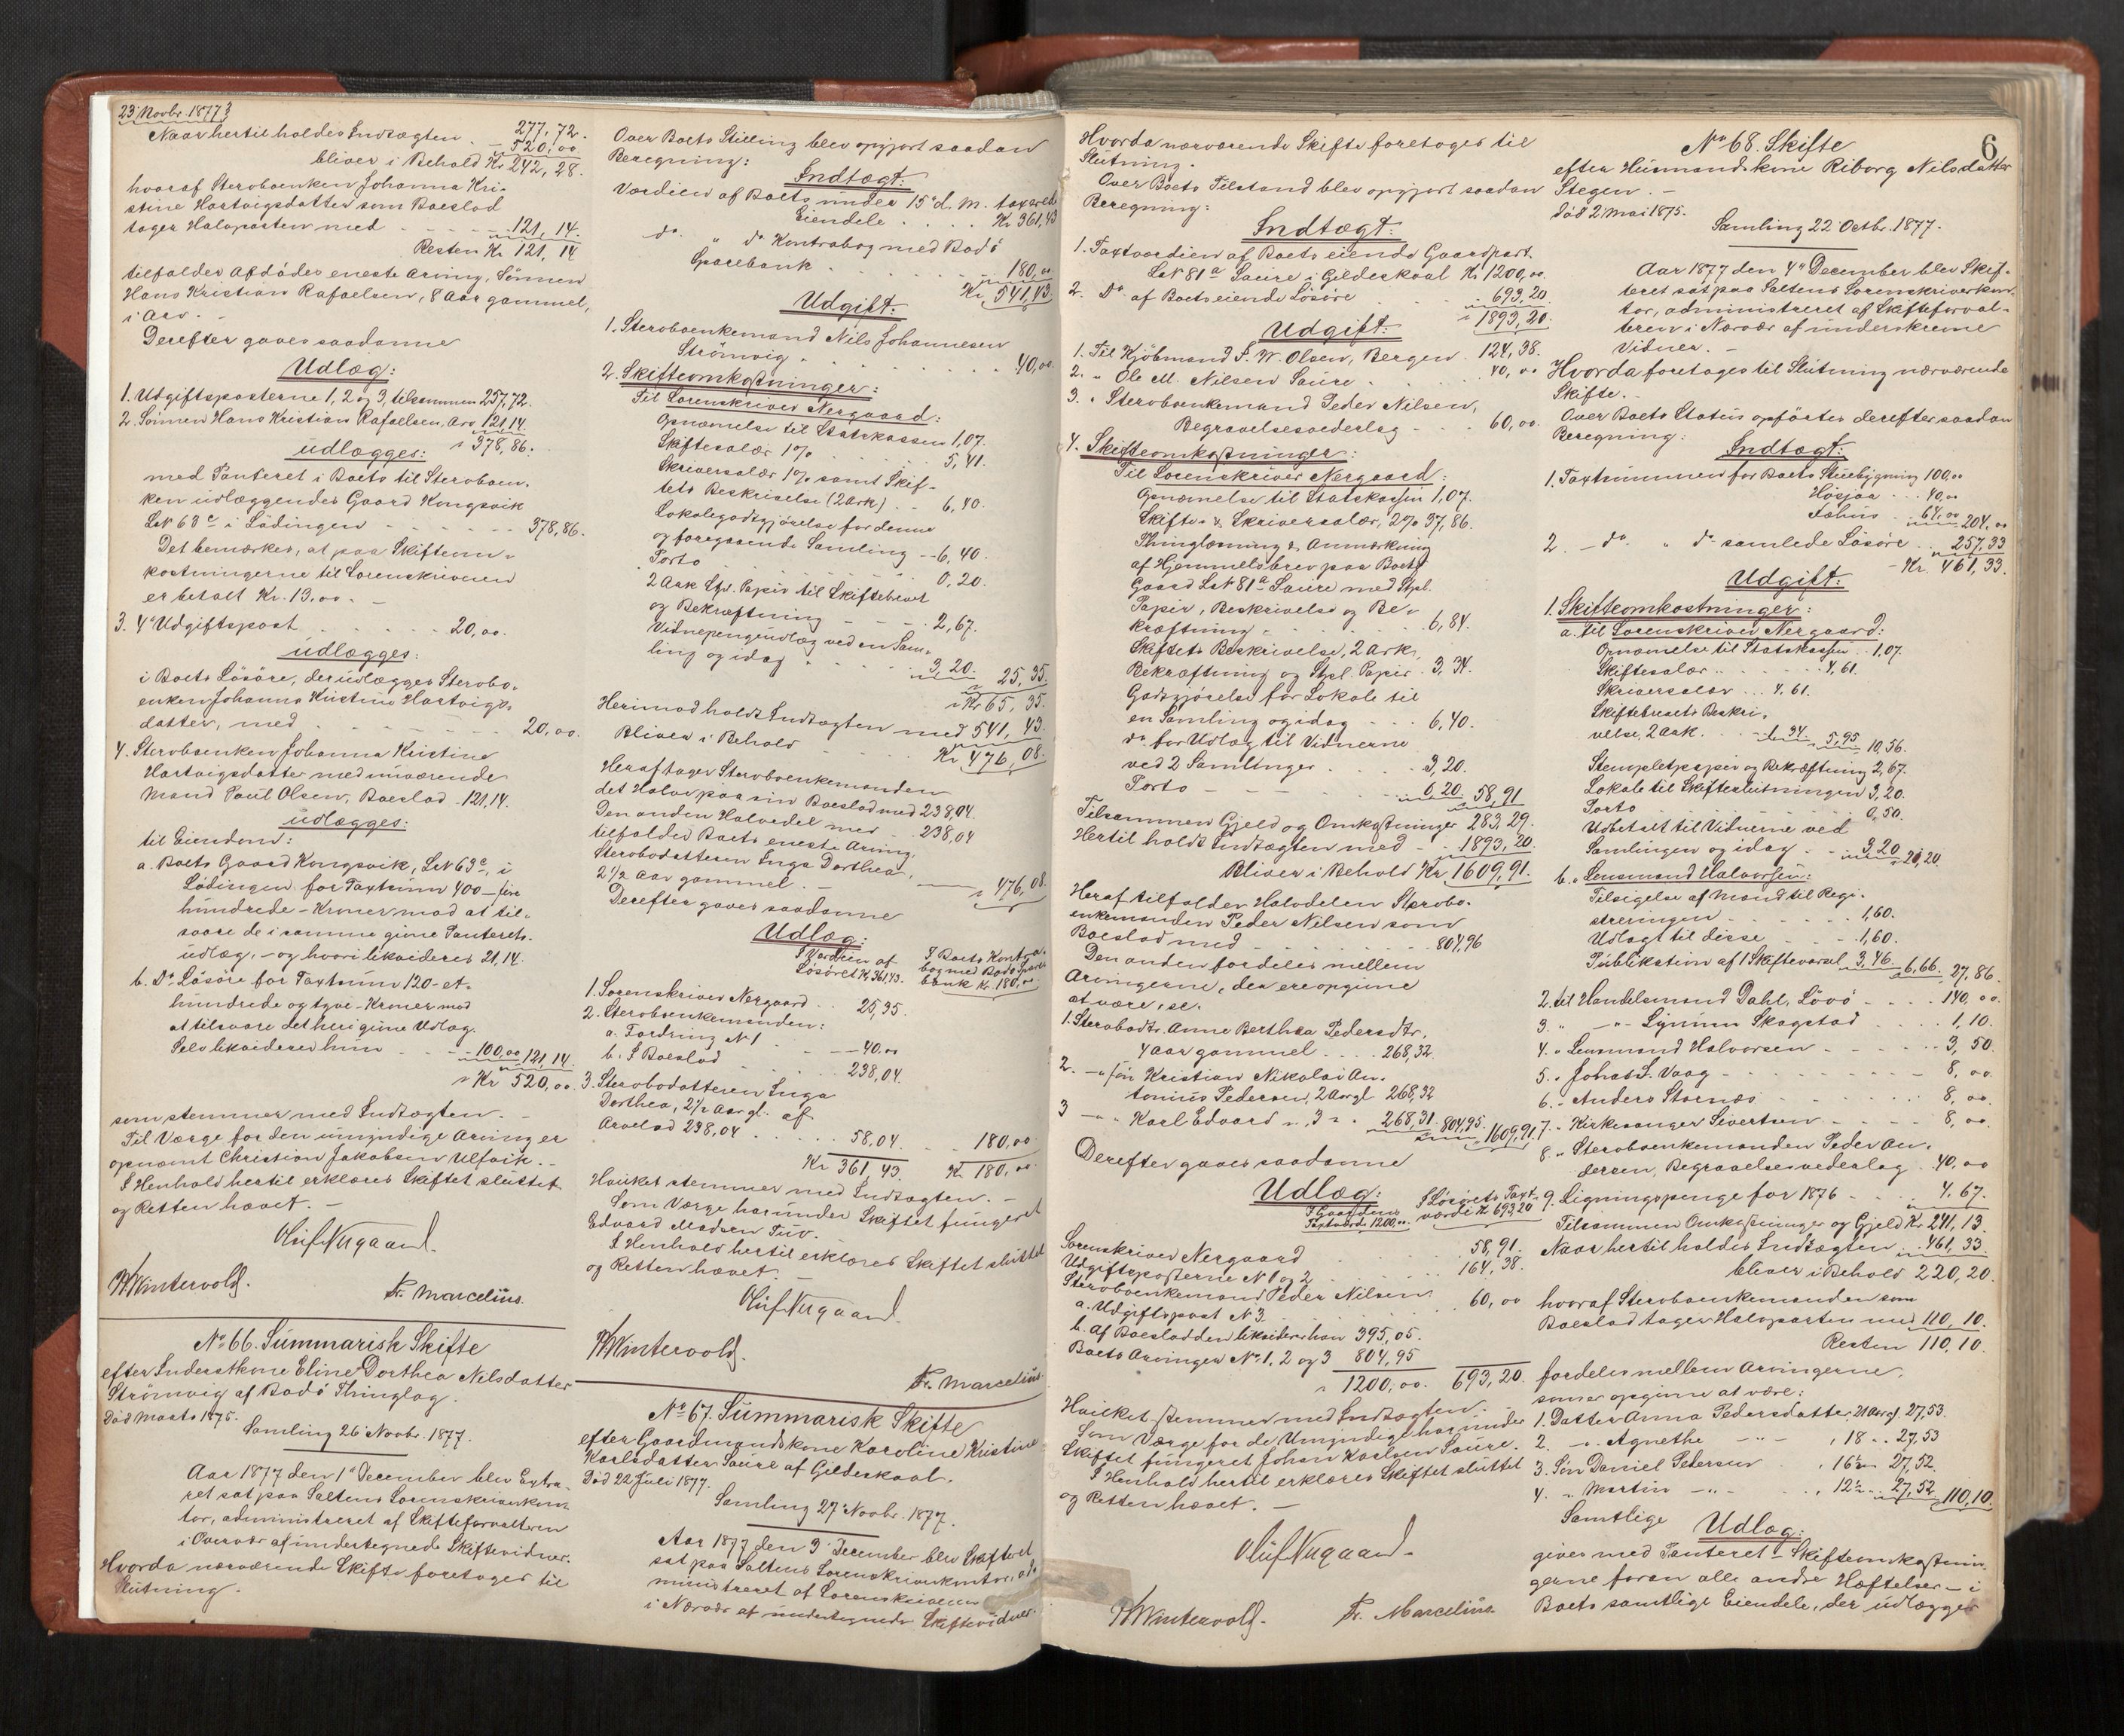 23 Novbr. 1877
Naar hertil holdes Indtægten
277,72.
520,00
bliver i Behold Kr 242,28.
hvoraf Sterboenken Johanna Kri-
stine Hartvigsdatter som Boeslod
tager Halvparten med 121,14.
Resten Kr 121,14
tilfalder Afdødes eneste Arving, Sønnen
Hans Kristian Rafaelsen, 8 Aar gammel,
i Arv. -
Derefter gaves saadanne
Udlæg:
1. Udgiftsposterne 1, 2 og 3, tilsammen 257,72.
2. Sønnen Hans Kristian Rafaelsen, Arv 121,14.
" 378,86.
udlægges:
med Panteret i Boets til Sterboen-
ken udlæggendes Gaard Kongsvik
LN 63c i Lødingen 378,86.
Det bemærkes, at paa Skifteom-
kostningerne til Sorenskriveren
er betalt Kr. 13,00. -
3. 4de Udgiftspost 20,00.
udlægges:
i Boets Løsøre, der udlægges Sterbo-
enken Johanna Kristine Hartvigs-
datter, med 20,00.
4. Sterboenken Johanna Kristine
Hartvigsdatter med nuværende
Mand Paul Olsen, Boeslod 121,14.
udlægges:
til Eiendom:
a. Boets Gaard Kongsvik, LN 63c, i
Lødingen for Taxtsum 400 - fire
hundrede - Kroner mod at til-
svare de i samme givne Panterets-
udlæg, - og hvori likvideres 21,14.
b. Do Løsøre for Taxtsum 120 - et-
hundrede og tyve - Kroner mod
at tilsvare det heri givne Udlæg.
Selv likviderer hun 100,00 121,14.
" Kr 520,00.
som stemmer med Indtægten. -
Til Værge for den umyndige Arving er
opnævnt Christian Jakobsen Ulsvik. -
I Henhold hertil erklæres Skiftet sluttet
og Retten hævet. -
Oluf Nergaard.
H Wintervold.
Fr. Marcelius.
No 66. Summarisk Skifte
efter Inderstkone Eline Dorthea Nilsdatter
Strømvig af Bodø Thinglag.
Død Marts 1875.
Samling 26 Novbr. 1877.
Aar 1877 den 1ste December blev Extra-
ret sat paa Saltens Sorenskriverkon-
tor, administreret af Skifteforvalteren
i Overvær af undertegnede Skiftevidner.
Hvorda nærværende Skifte foretages til
Slutning.
Over Boets Stilling blev opgjort saadan
Beregning:
Indtægt:
Værdien af Boets under 15de d. M. taxerede
Eiendele Kr 361,43
do " do Kontrabog med Bodø
Sparebank 180,00
Kr. 541,43.
Udgift:
1. Sterboenkemand Nils Johannesen
Strømvig 40,00
2. Skifteomkostninger:
Til Sorenskriver Nergaard:
Opnævnelse til Statskassen 1,07.
Skiftesalær 1% 5,41.
Skriversalær 1% samt Skif-
tets Beskrivelse (2 Ark) 6,40.
Lokalegodtgjørelse for denne
og foregaaende Samling 6,40.
Porto 0,20.
2 Ark Stp. Papir til Skiftebrevet
og Bekræftning 2,67.
Vidnepengeudlæg ved en Sam-
ling og idag 3,20. 25,35.
" Kr 65,35.
Herimod holdt Indtægten med 541,43.
Bliver i Behold Kr 476,08.
Heraf tager Sterboenkemanden
det Halve paa sin Boeslod med 238,04.
Den anden Halvdel med 238,04
tilfalder Boets eneste Arving,
Sterbodatteren Inga Dorthea,
2 1/2 Aar gammel. - " 476,08.
Derefter gaves saadanne
Udlæg:
I Værdien af
Løsøret Kr. 361,43.
I Boets Kontra-
bog med Bodø Spare-
bank Kr. 180,00.
1. Sorenskriver Nergaard 25,35.
2. Sterboenkemanden:
a. Fordring N 1 40,00
b. I Boeslod 238,04.
3. Sterbodatteren Inga
Dorthea, 2 1/2 Aar gl. af
Arvelod 238,04 58,04. 180,00.
Kr 361,43. Kr. 180,00.
Hvilket stemmer med Indtægten. -
Som Værge har under Skiftet fungeret
Edvard Madsen Tuv.
I Henhold hertil erklæres Skiftet sluttet
og Retten hævet. -
Oluf Nergaard.
H Wintervold.
Fr. Marcelius.
No 67. Summarisk Skifte
efter Gaardmandskone Karoline Kristine
Karlsdatter Saure af Gildeskaal.
Død 22 Juli 1877.
Samling 27 Novbr. 1877.
Aar 1877 den 3 December blev Skifteret
sat paa Saltens Sorenskriverkontor, ad-
ministreret af Sorenskriveren
i Nærvær af undertegnede Skiftevidner.
Hvorda nærværende Skifte foretages til
Slutning.
Over Boets Tilstand blev opgjort saadan
Beregning:
Indtægt:
1. Taxtværdien af Boets eiende Gaardpart
LN 81a Saure i Gildeskaal Kr 1200,00.
2. Do af Boets eiende Løsøre 693,20
" 1893,20.
Udgift:
1. Til Kjøbmand P. W. Olsen, Bergen 124,38.
2. " Ole M. Nilsen Saure 40,00
3. " Sterboenkemand Peder Nilsen,
Begravelsesvederlag 60,00.
4. Skifteomkostninger:
Til Sorenskriver Nergaard:
Opnævnelse til Statskassen 1,07.
Skifte- & Skriversalær, 2% 37,86.
Thinglæsning & Anmærkning
af Hjemmelsbrev paa Boets
Gaard LN 81a Saure med Stpl.
Papir, Beskrivelse og Be-
kræftning 6,84.
Skiftets Beskrivelse, 2 Ark,
Bekræftning og Stpl. Papir 3,34.
Godtgjørelse for Lokale til
en Samling og idag 6,40.
do for Udlæg til Vidnerne
ved 2 Samlinger 3,20.
Porto 0,20 58,91
Tilsammen Gjeld og Omkostninger 283,29.
Hertil holdt Indtægten med 1893,20.
Bliver i Behold Kr 1609,91.
Heraf tilfalder Halvdelen Sterbo-
enkemanden Peder Nilsen som
Boeslod med 804,96
Den anden fordeles mellem
Arvingerne, der ere opgivne
at være, se.
1. Sterbodtr. Anne Berthea Pedersdtr,
4 Aar gammel 268,32.
2. - " søn Kristian Nikolai An-
tonius Pedersen, 2 Aar gl 268,32
3 - " - Karl Edvard " 3 " 268,31 804,95. 1609,91.
Derefter gaves saadanne
Udlæg:
I Gaardens
Taxtværdi 1200,00.
I Løsørets Taxt-
værdi Kr 693,20
Sorenskriver Nergaard 58,91.
Udgiftsposterne N 1 og 2 164,38.
Sterboenkemand Peder Nilsen
a. Udgiftspost N 3. 60,00
b. Af Boeslodden likviderer han 395,05.
Boets Arvinger No 1, 2 og 3 804,95
" 1200,00. 693,20.
Hvilket stemmer med Indtægten. -
Som Værge for de Umyndige har under
Skiftet fungeret Johan Karlsen Saure.
I Henhold hertil erklæres Skiftet sluttet
og Retten hævet. -
Oluf Nergaard.
H Wintervold.
Fr. Marcelius.
6
No 68. Skifte
efter Husmandskone Riborg Nilsdatter
Stegen. -
Død 2 Mai 1875.
Samling 22 Octbr. 1877.
Aar 1877 den 4de December blev Skif-
teret sat paa Saltens Sorenskriverkon-
tor, administreret af Skifteforval-
teren i Nærvær af underskrevne
Vidner. -
Hvorda foretages til Slutning nærværende
Skifte. -
Over Boets Status opførtes derefter saadan
Beregning:
Indtægt:
1. Taxtsummen for Boets Stuebygning 100,00
Høsjaa 40,00
Fæhus 64,00 204,00
2. - do " do samlede Løsøre 257,33
Kr. 461,33.
Udgift:
1. Skifteomkostninger:
a. til Sorenskriver Nergaard:
Opnævnelse til Statskassen 1,07.
Skiftesalær 4,61.
Skriversalær 4,61.
Skiftebrevets Beskri-
velse, 2 Ark. 1,34. 5,95 10,56.
Stempletpapir og Bekræftning 2,67.
Lokale til Skifteslutningen 3,20.
Porto 0,50.
Udbetalt til Vidnerne ved
Samlingen og idag 3,20 21,20
b. Lensmand Halvorsen:
Tilsigelse af Mænd til Regi-
streringen 1,60.
Udlagt til disse 1,60.
Publikation af 1 Skiftevarsel 3,46. 6,66. 27,86.
2. til Handelsmand Dahl, Løvø 140,00.
3. " - " - Lynum Skogstad 1,10.
4. " Lensmand Halvorsen 3,50.
5. " Johas S. Vaag 8,00.
6. " Anders Stornæs 8,00.
7. " Kirkesanger Sivertsen 8,00.
8. " Sterboenkemanden Peder An-
dersen, Begravelsesvederlag 40,00
9. Ligningspenge for 1876 4,67.
Tilsammen Omkostninger og Gjeld Kr. 241,13.
Naar hertil holdes Indtægten 461,33.
bliver i Behold 220,20.
hvoraf Sterboenkemanden som
Boeslod tager Halvparten med 110,10.
Resten 110,10.
fordeles mellem Arvingerne,
som er opgivne at være:
1. Datter Anna Pedersdatter, 21 Aar gl. 27,53.
2. - " - Agnethe - " - " 18 " 27,53
3. Søn Daniel Pedersen " 16 1/2 " 27,52.
4. " Martin - " - " 12 1/2 " 27,52 110,10.
Samtlige
Udlæg:
gives med Panteret - Skifteomkostnin-
gerne foran alle andre Hæftelser - i
Boets samtlige Eiendele, der udlægges